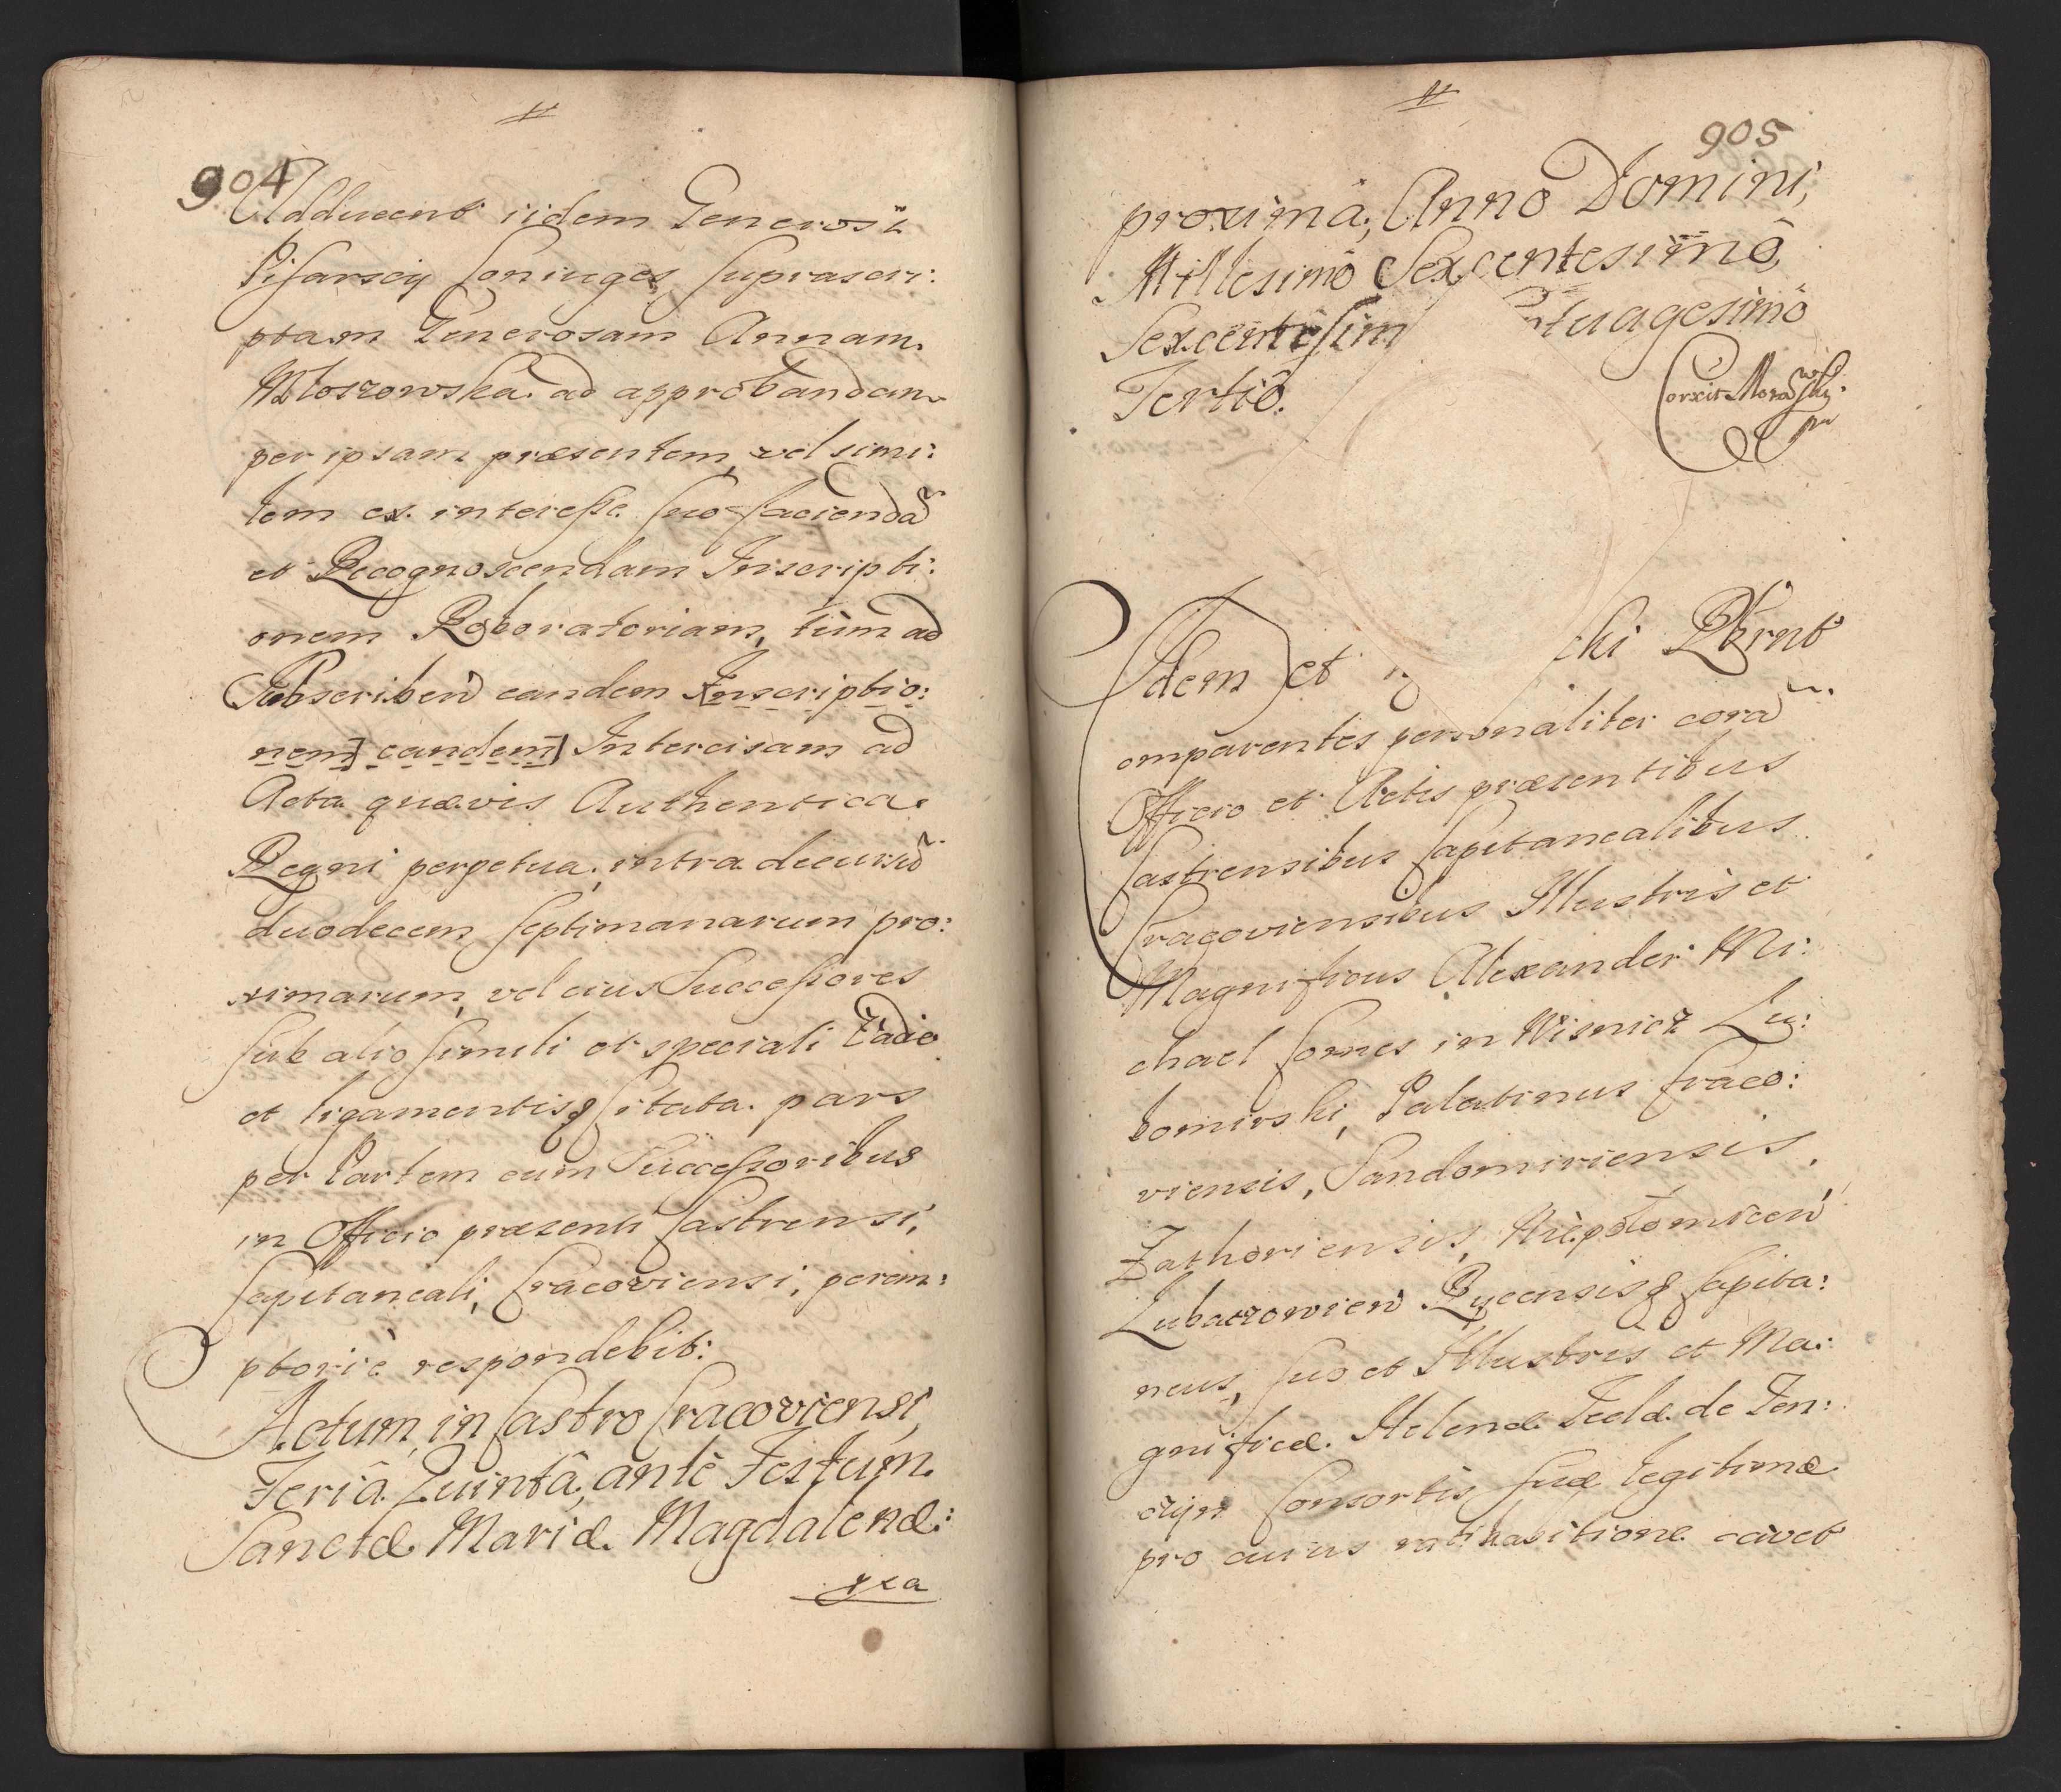 904
Adducent iidem Generosi
Pisarscij Coniuges suprascri:
ptam Generosam Annam
Młoszowska ad approbandam
per ipsam præsentem, vel simi:
lem ex interesse suo faciendã
et Recognoscendam Inscripti:
onem Roboratoriam, tùm ad
Subscribeń eandem Inscriptio:
nem eandem Intercisam ad
Acta quævis Authentica
Regni perpetua, intra decursũ
duodecem septimanarum pro:
ximarum, vel eius Successores
sub alio simili et speciali Vadio
et ligamentisq citata pars
per Partem cum Successoribus
in Officio præsenti Castrensi,
Capitaneali, Cracoviensi, perem:
ptoriè respondebit:
Actum in Castro Cracoviensi,
Feriâ Quintâ, antè Festum
Sanctæ Mariæ Magdalenæ:
905
proximâ, Anno Domini,
Millesimô Sexcentesimô,
Sexcentesim ntuagesimô
Tertiô.
Corxit Morawski
mp
Idem et chi Rkrnt
omparentes personaliter corã
Officio et Actis præsentibus
Castrensibus Capitanealibus
Cracoviensibus Illustris et
Magnificus Alexander Mi:
chael Comes in Wisnicz Lu:
bomirski, Palatinus Craco:
viensis, Sandomiriensis,
Zathoriensis, Niepołomiceń
Lubaczowień Rycensisq Capita:
neus, suo et Illustris et Ma:
gnificæ Helenæ Teclæ de Ten:
czyn Consortis suæ legitimæ
pro cuius ratihabitione cavet